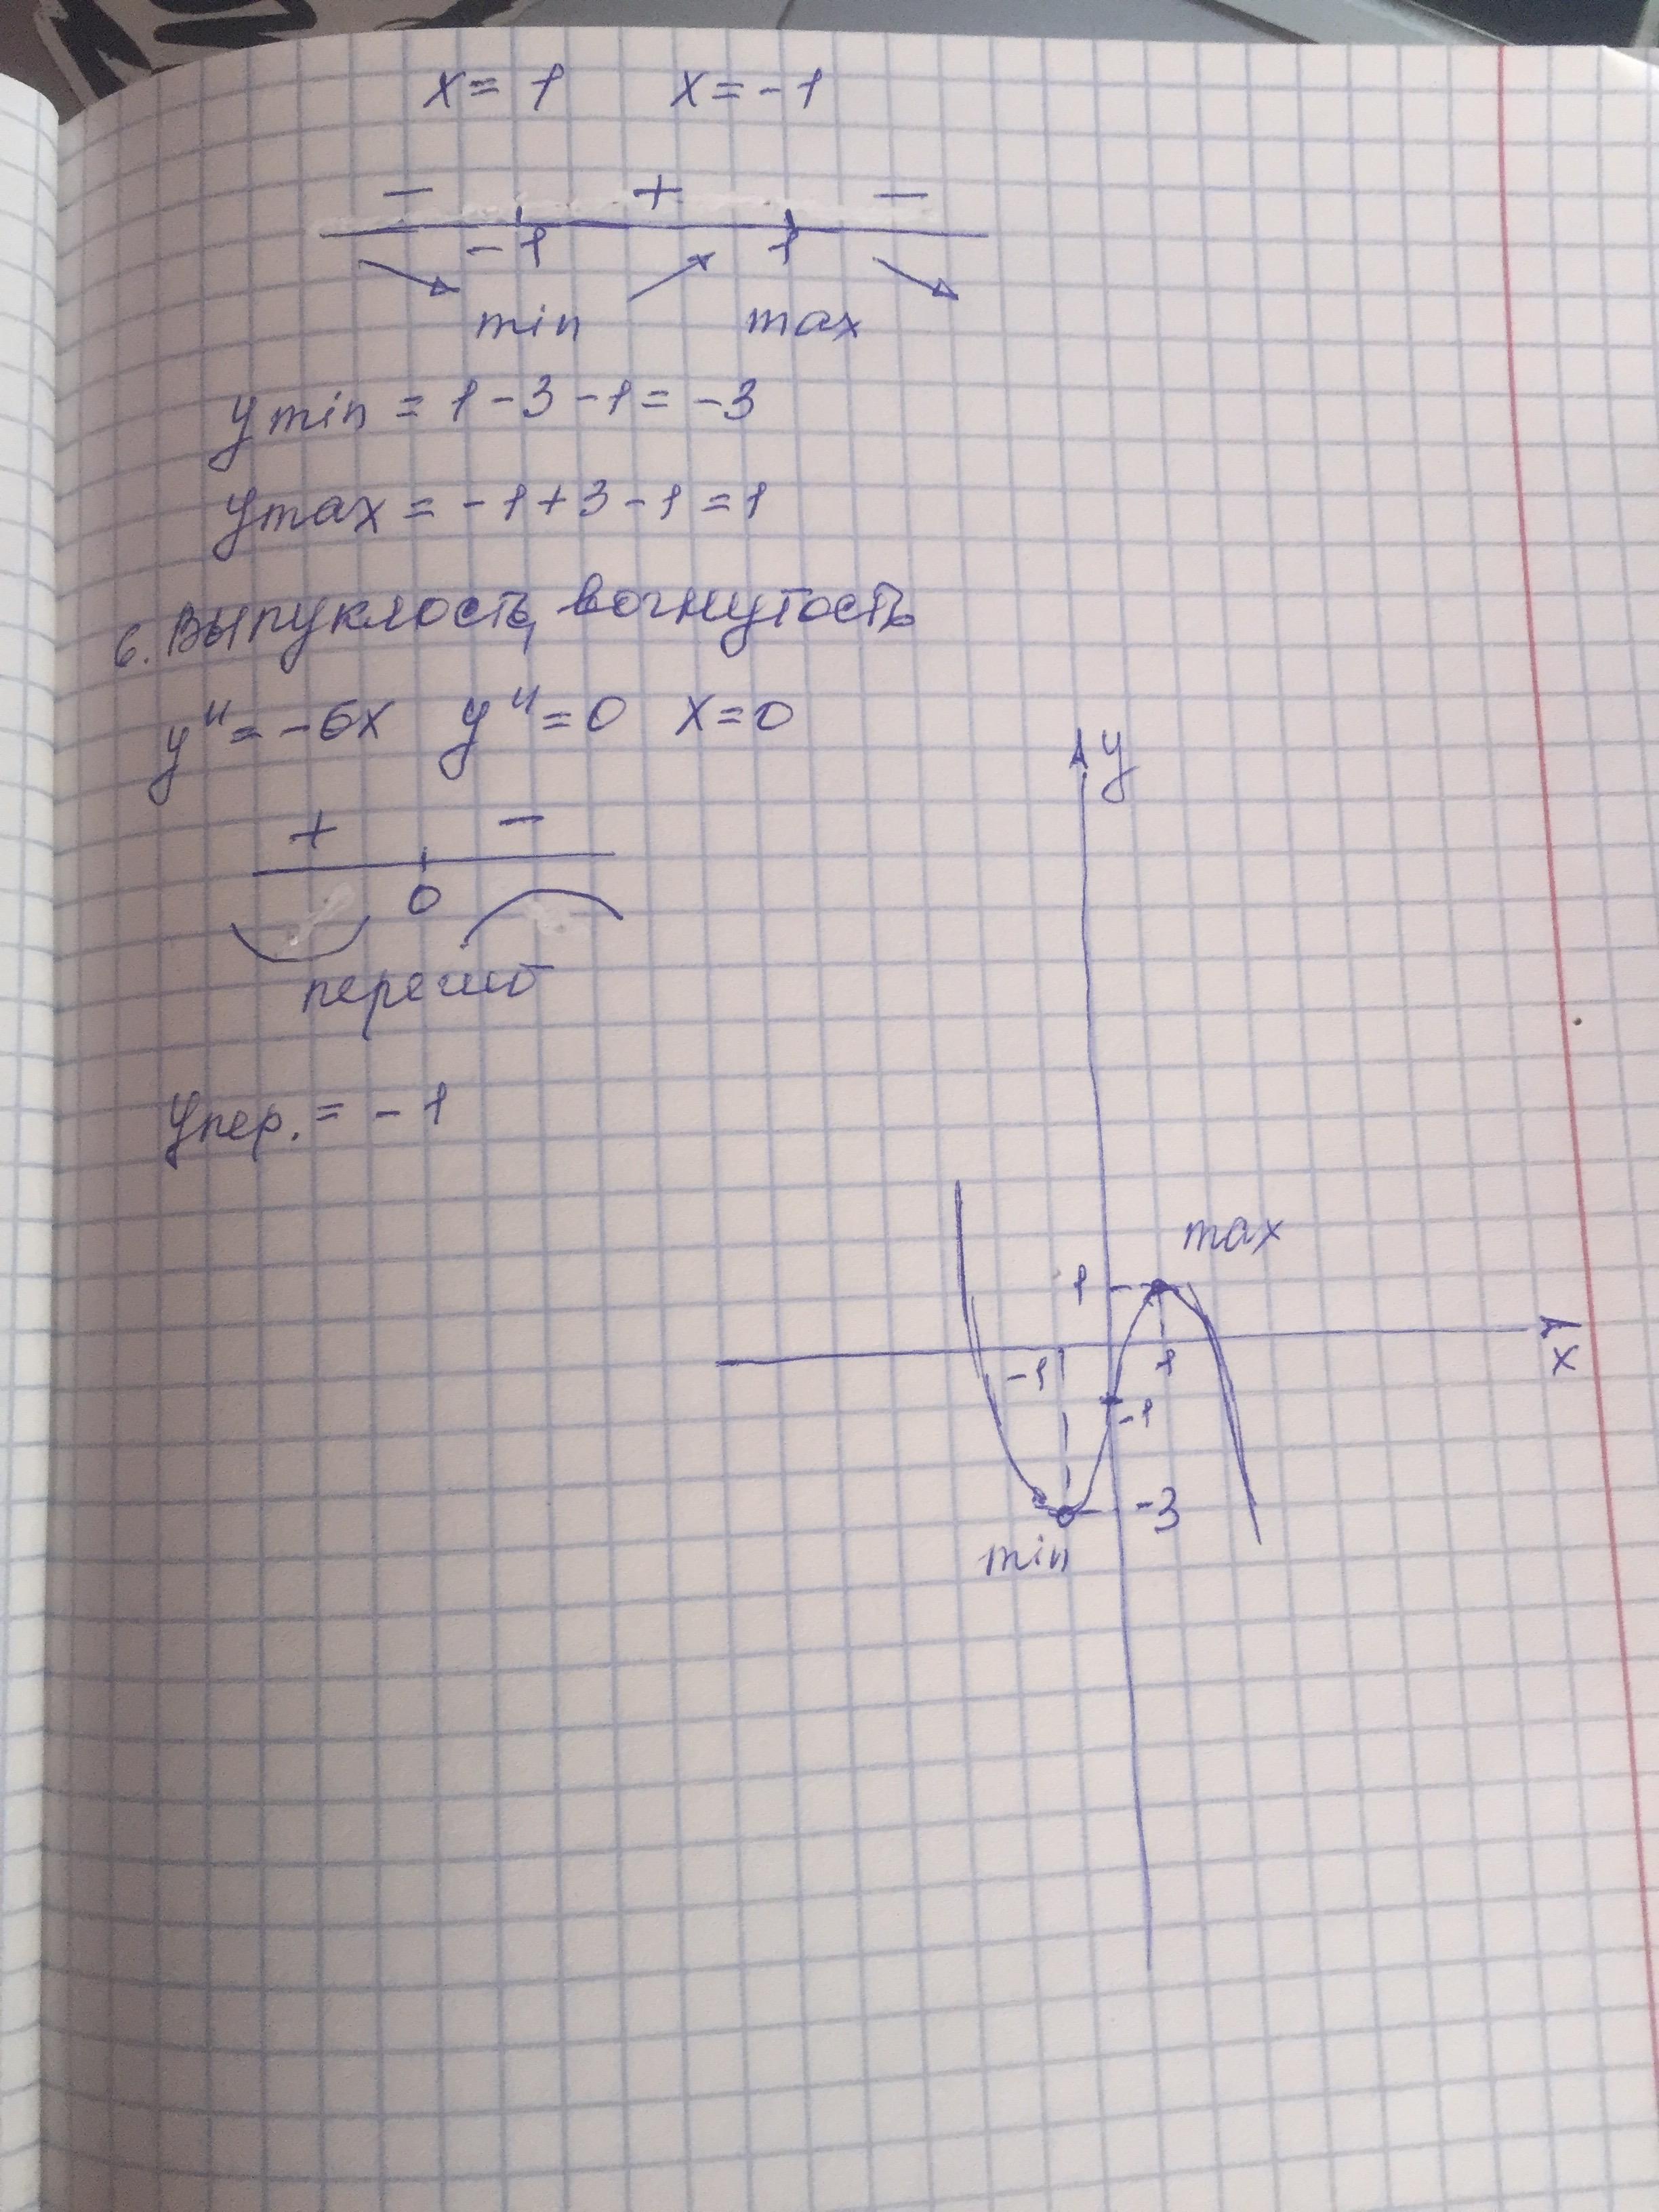 x = 1 x = -1
- + -
-1 1
min max
y min = 1 - 3 - 1 = -3
y max = -1 + 3 - 1 = 1
6. Выпуклость, вогнутость
y'' = -6x y'' = 0 x = 0
+ -
0
перегиб
y пер. = -1
y
max
1
-1 1
x
-1
-3
min